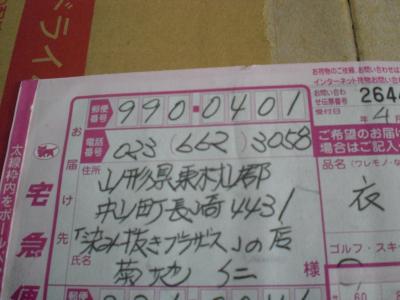 ドライ
お荷物のご依頼、お問い合わせは
インターネット
郵便番号 990-0401
お問い合わせ伝票番号 2644
受付日 年 4 月
電話番号 023 (662) 3058
ご希望のお届け
場合はご記入
お届け先
住所 山形県東村山郡
中山町長崎4431
「染み抜きプラザス」の店
氏名 菊地 仁 様
品名 (ワレモノ・な
衣
ゴルフ・スキ
太線枠内をボールペン
宅急便
60 80